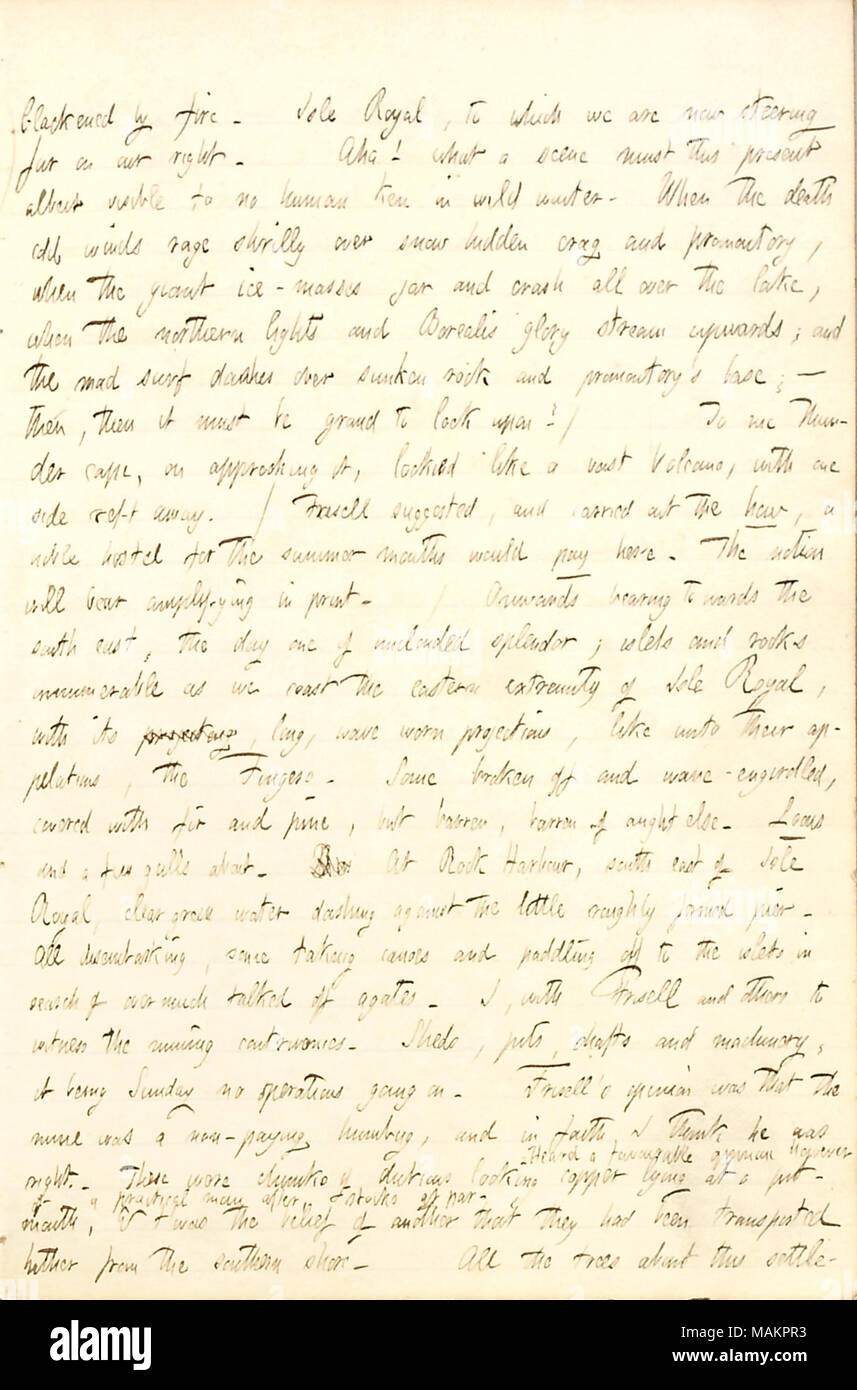 blackened by fire. Isle Royal, to which we are now steering
far on our right. Aha! what a scene must this present
albeit visible to no human ken in wild winter. When the death
cold winds rage shrilly over snow hidden crag and promontory,
when the giant ice-masses jar and crash all over the lake,
when the northern lights and Borealis glory stream upwards; and
the mad surf dashes over sunken rock and promontory's base; —
then, then it must be grand to look upon! / To me Thun-
der cape, on approching it, looked like a vast Volcano, with one
side reft away. / Frisell suggested, and carried out the how, a
noble hostel for the summer months would pay here. The notion
will bear amplyfying in print. / Onwards bearing towards the
south east, the day one of unclouded splendor; islets and rocks
innumerable as we coast the eastern extremity of Isle Royal,
with its projecting, long, wave worn projections, like unto their ap-
pelations, the Fingers. Some broken off and wave-engirdled,
covered with fir and pine, but barren, barren of aught else. Loons
and a few gulls about. At Rock Harbour, south east of Isle
Royal, clear green water dashing against the little roughly formed pier.
All disembarking, some taking canoes and paddling off to the islets in
search of overmuch talked of agates. I, with Frisell and others to
witness the mining contrivances. Sheds, pits, shafts and machinery,
it being Sunday no operations going on. Frisell's opinion was that the
mine was a non-paying humbug, and in faith I think he was
right. Heard a favourable opinion however
There were chunks of looking copper lying at a pit-
of a practical man after.
mouth, & t'was the belief of another that they had been transported
hither from the southern shore. All the trees about this settle-
alamy
Image ID: MAKPR3
www.alamy.com